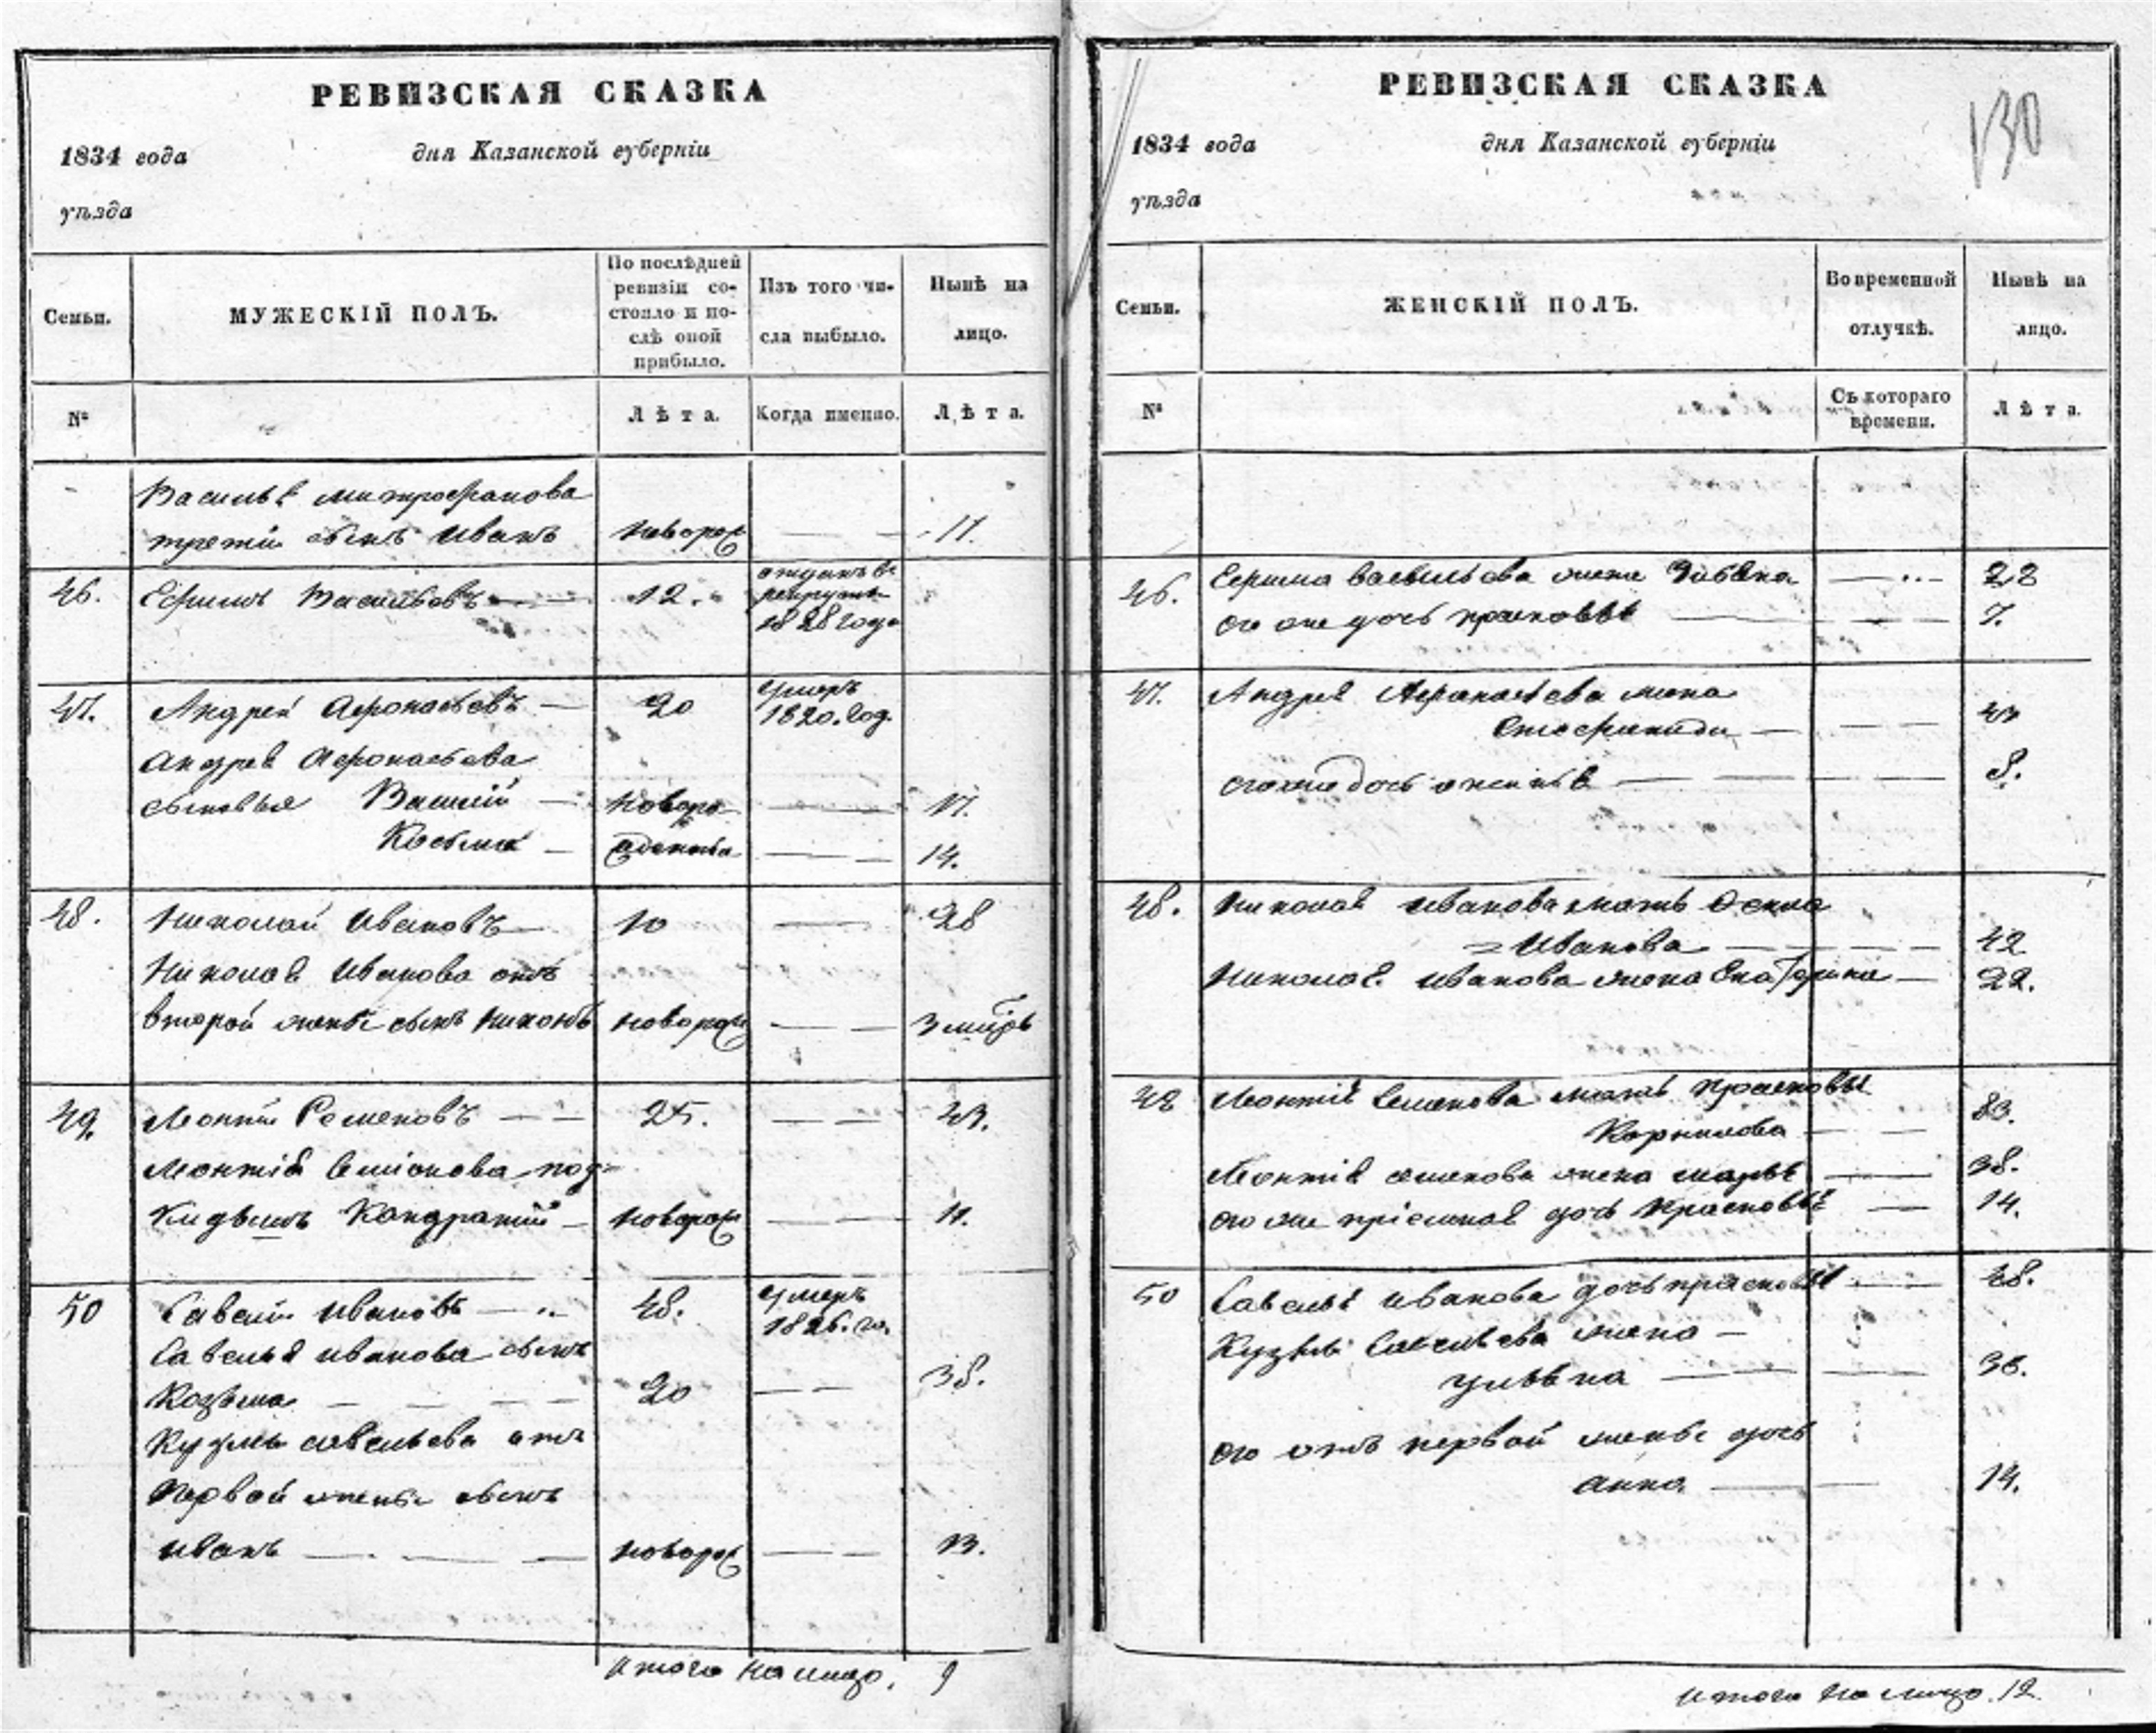 РЕВИЗСКАЯ СКАЗКА
1834 года дня Казанской губернiи
уѣзда
Семьи.
МУЖЕСКIЙ ПОЛЪ.
По послѣдней ревизiи со-
стояло и по-
слѣ оной
прибыло.
Изъ того чи-
сла выбыло.
Нынѣ на
лицо.
№
Лѣта.
Когда именно.
Лѣта.
Василья митрофанова
третiй сынъ Иванъ новорож 11.
46. Ефимъ Васильевъ 12. отданъ въ
рекруты
1828 года
47. Андрей Афонасьевъ 20 умеръ
1820. год.
Андрея Афонасьева
сыновья Василiй новоро 17.
Косьма жденныя 14.
48. Николай Ивановъ 10 28
Николая Иванова отъ
второй жены сынъ Никонъ новорож 3 мѣсъ
49. Леонтiй Семеновъ 25. 43.
Леонтiя Семiонова под-
кидышъ Кондратiй новорож 11.
50 Савелiй Ивановъ 48. умеръ
1826. го.
Савелья Иванова сынъ
Козьма 20 38.
Кузмы савельева отъ
первой жены сынъ
Иванъ новорож 13.
Итого на лицо. 9
РЕВИЗСКАЯ СКАЗКА
130
1834 года дня Казанской губернiи
уѣзда
Семьи.
ЖЕНСКIЙ ПОЛЪ.
Во временной
отлучкѣ.
Нынѣ на
лицо.
№
Съ котораго
времени.
Лѣта.
46. Ефима васильева жена 28
его же дочь прасковья 7.
47. Андрея Афанасьева жена
Стефанида 47
его же дочь 8.
48. Николая Иванова мать
Иванова 42
Николая Иванова жена Екатерина 22.
Леонтiя Семенова мать прасковья
Корнилова 83.
Леонтiя семенова жена марья 38.
его же прiемная дочь Прасковья 14.
50 Савелья Иванова дочь прасковья 48.
Кузьмы Савельева жена
ульяна 36.
его отъ первой жены дочь
анна 14.
Итого на лицо. 12.